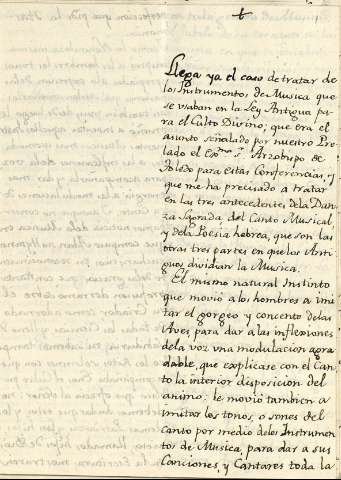 Llega ya el caso de tratar de
los Instrumentos de Musica que
se usaban en la Ley Antigua pa-
ra el Culto Divino; que era el
asunto señalado por nuestro Pre-
lado el Exmo. Sr. Arzobispo de
Toledo para estas Conferencias, y
que me ha precisado a tratar
en las tres antecedentes de la Dan-
za Sagrada, del Canto Musical
y de la Poesia hebrea, que son las
otras tres partes en que los Anti-
guos dividian la Musica.
El mismo natural Instinto
que movió a los hombres a imi-
tar el gorgeo y concento de las
Aves para dar a las inflexiones
de la voz una modulacion agra-
dable, que explicase con el Can-
to la interior disposicion del
animo; le movió tambien a
imitar los tonos, o sones del
canto por medio de los Instrumen-
tos de Musica, para dar a sus
Canciones, y Cantares toda la